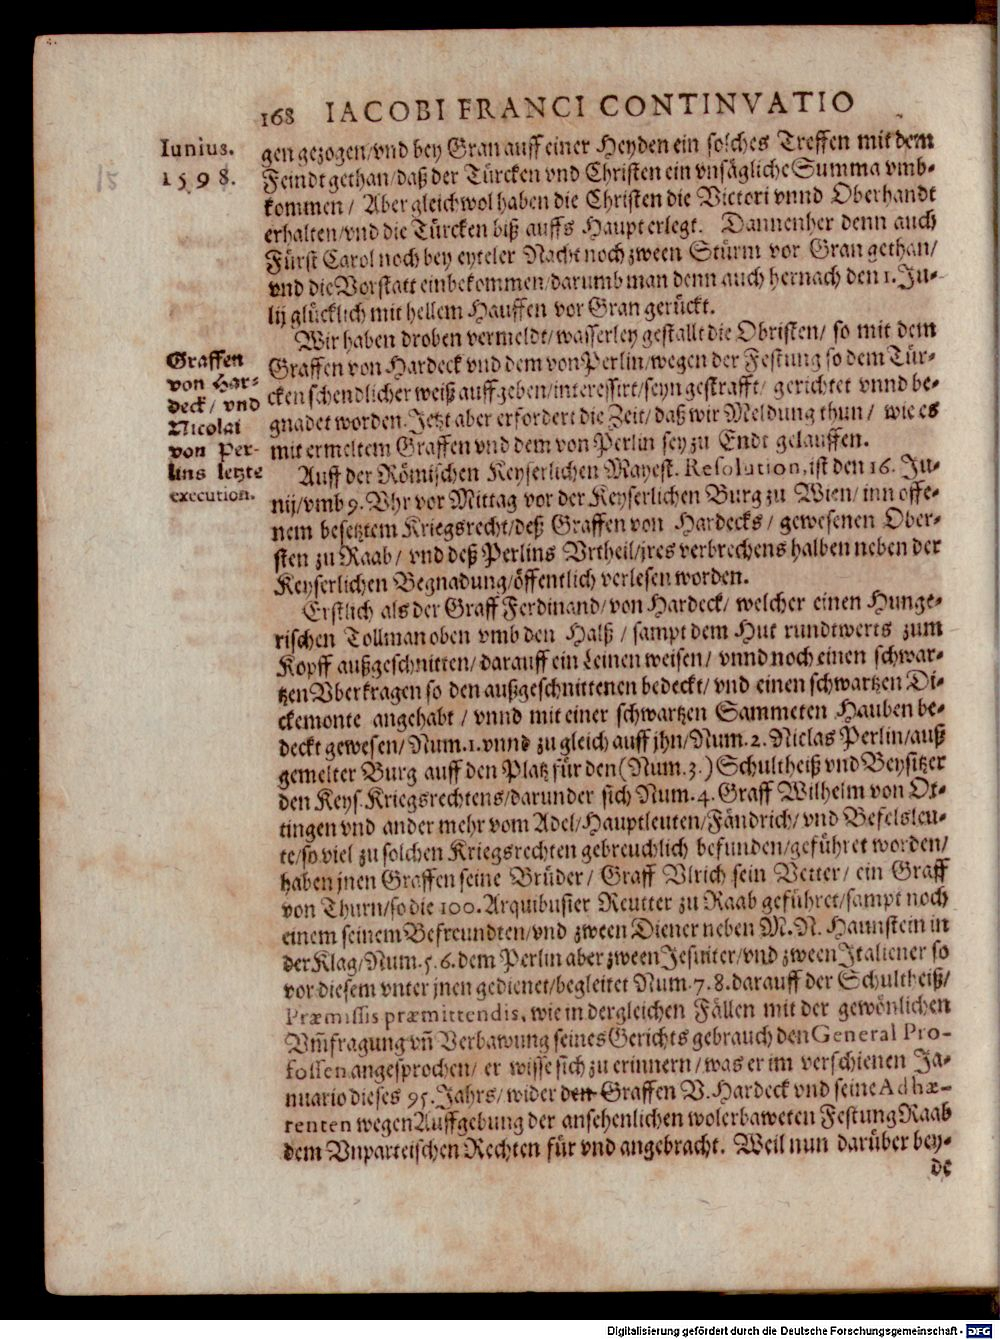 168 IACOBI FRANCI CONTINVATIO
Iunius.
1598.
15
gen gezogen/vnd bey Gran auff einer Heyden ein solches Treffen mit dem
Feindt gethan/daß der Türcken vnd Christen ein vnsägliche Summa vmb-
kommen/ Aber gleichwol haben die Christen die Victori vnnd Oberhandt
erhalten/vnd die Türcken biß auffs Haupt erlegt. Dannenher denn auch
Fürst Carol noch bey eyteler Nacht noch zween Stürm vor Gran gethan/
vnd die Vorstatt einbekommen/darumb man denn auch hernach den 1. Ju-
lij glücklich mit hellem Hauffen vor Gran gerückt.
Wir haben droben vermeldt/wasserley gestallt die Obristen/ so mit dem
Graffen von Hardeck vnd dem von Perlin/wegen der Festung so dem Tür-
cken schendlicher weiß auffgeben/interessirt/seyn gestrafft/ gerichtet vnnd be-
gnadet worden. Jetzt aber erfordert die Zeit/daß wir Meldung thun/ wie es
mit ermeltem Graffen vnd dem von Perlin sey zu Endt gelauffen.
Graffen
von Har-
deck/ vnd
Nicolai
von Per-
lins letzte
execution.
Auff der Römischen Keyserlichen Mayest. Resolution, ist den 16. Ju-
nij/vmb 9. Vhr vor Mittag vor der Keyserlichen Burg zu Wien/ inn offe-
nem besetztem Kriegsrecht/deß Graffen von Hardecks/ gewesenen Ober-
sten zu Raab/ vnd deß Perlins Vrtheil/jres verbrechens halben neben der
Keyserlichen Begnadung/öffentlich verlesen worden.
Erstlich als der Graff Ferdinand/von Hardeck/ welcher einen Hunge-
rischen Tollman oben vmb den Halß/ sampt dem Hut rundtwerts zum
Kopff außgeschnitten/darauff ein Leinen weisen/ vnnd noch einen schwar-
tzen Vberkragen so den außgeschnittenen bedeckt/ vnd einen schwartzen Di-
ckemonte angehabt/ vnnd mit einer schwartzen Sammeten Hauben be-
deckt gewesen/Num.1. vnnd zu gleich auff jhn/Num.2. Niclas Perlin/auß
gemelter Burg auff den Platz für den (Num.3.) Schultheiß vnd Beysitzer
den Keys. Kriegsrechtens/darunder sich Num.4. Graff Wilhelm von Ot-
tingen vnd ander mehr vom Adel/Hauptleuten/Fändrich/vnd Befelsleu-
te/so viel zu solchen Kriegsrechten gebreuchlich befunden/geführet worden/
haben jnen Graffen seine Brüder/ Graff Vlrich sein Vetter/ ein Graff
von Thurn/so die 100. Arquibusier Reutter zu Raab geführet/sampt noch
einem seinem Befreundten/vnd zween Diener neben M.N. Haunstein in
der Klag/Num.5.6. dem Perlin aber zween Jesuiter/vnd zween Italiener so
vor diesem vnter jnen gedienet/begleitet Num.7.8. darauff der Schultheiß/
Præmissis præmittendis, wie in dergleichen Fällen mit der gewönlichen
Vm̃fragung vñ Verbawung seines Gerichts gebrauch den General Pro-
fossen angesprochen/ er wisse sich zu erinnern/was er im verschienen Ja-
nuario dieses 95. Jahrs/ wider den Graffen V. Hardeck vnd seine Adhæ-
renten wegen Auffgebung der ansehenlichen wolerbaweten Festung Raab
dem Vnparteischen Rechten für vnd angebracht. Weil nun darüber bey-
de
Digitalisierung gefördert durch die Deutsche Forschungsgemeinschaft - DFG